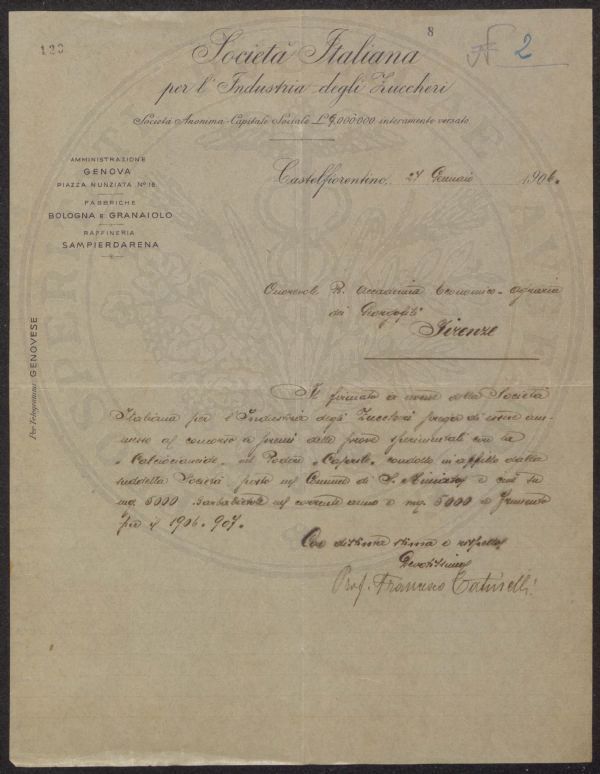 123
8
N 2
Società Italiana
per l'Industria degli Zuccheri
Società Anonima-Capitale Sociale interamente versato
AMMINISTRAZIONE
GENOVA
PIAZZA NUNZIATA Nº 18
FABBRICHE
BOLOGNA E GRANAIOLO
RAFFINERIA
SAMPIERDARENA
Castelfiorentino, 27 Gennaio 1906.
Per Telegrammi GENOVESE
Onorevole R. Accademia Economico-Agraria
dei Georgofili
Firenze
Il firmato a nome della Società
Italiana per l'Industria degli Zuccheri prega di essere am-
messo al concorso a premi delle prove sperimentali con la
"Calciocianamide" nel Podere condotto in affitto dalla
suddetta Società posto nel Comune di S. Miniato e cioè su
mq. 5000 Barbabietole nel corrente anno e mq. 5000 a Frumento
per il 1906-907.
Con distinta stima e rispetto
Devotissimo
Prof. Francesco